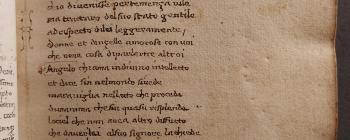 chio diuenisse per temenza uile
ma tractero del suo stato gentile
a respecto dilei leggeramente
donne et donzelle amorose con uoi
che none cosa daparlarne altrui
Angelo chiama indiuino intellecto
et dice sire nelmondo siuede
marauiglia nellacto che procede
dunanima che fin quasu risplende
lociel che non aue altro diffecto
che dauerlei alsuo signore lachiede